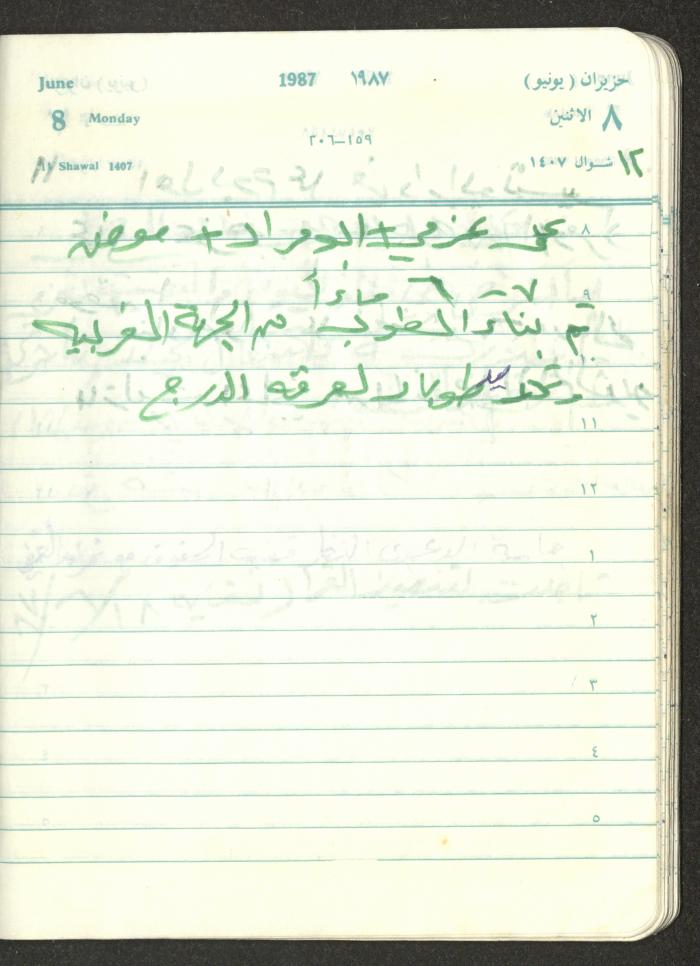 June 1987 ١٩٨٧ حزيران ( يونيو )
8 Monday ٨ الاثنين
٢٠٦-١٥٩
11 Shawal 1407 شوال ١٤٠٧ ١٢
٨
على عزمي + ابو مراد + عوض
٩ ٧ - ٦ مساءاً
تم بناء الطوب من الجهة الغربيه
وتحديد طوبار لغرفة الدرج
١١
١٢
١
٢
٣
٤
٥